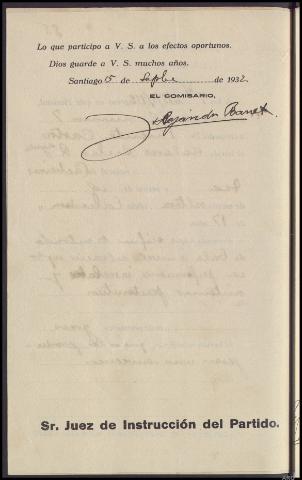 Lo que participo a V. S. a los efectos oportunos.
Dios guarde a V. S. muchos años.
Santiago 15 de Sepbre de 1932.
EL COMISARIO,
Alejandro
Sr. Juez de Instrucción del Partido.